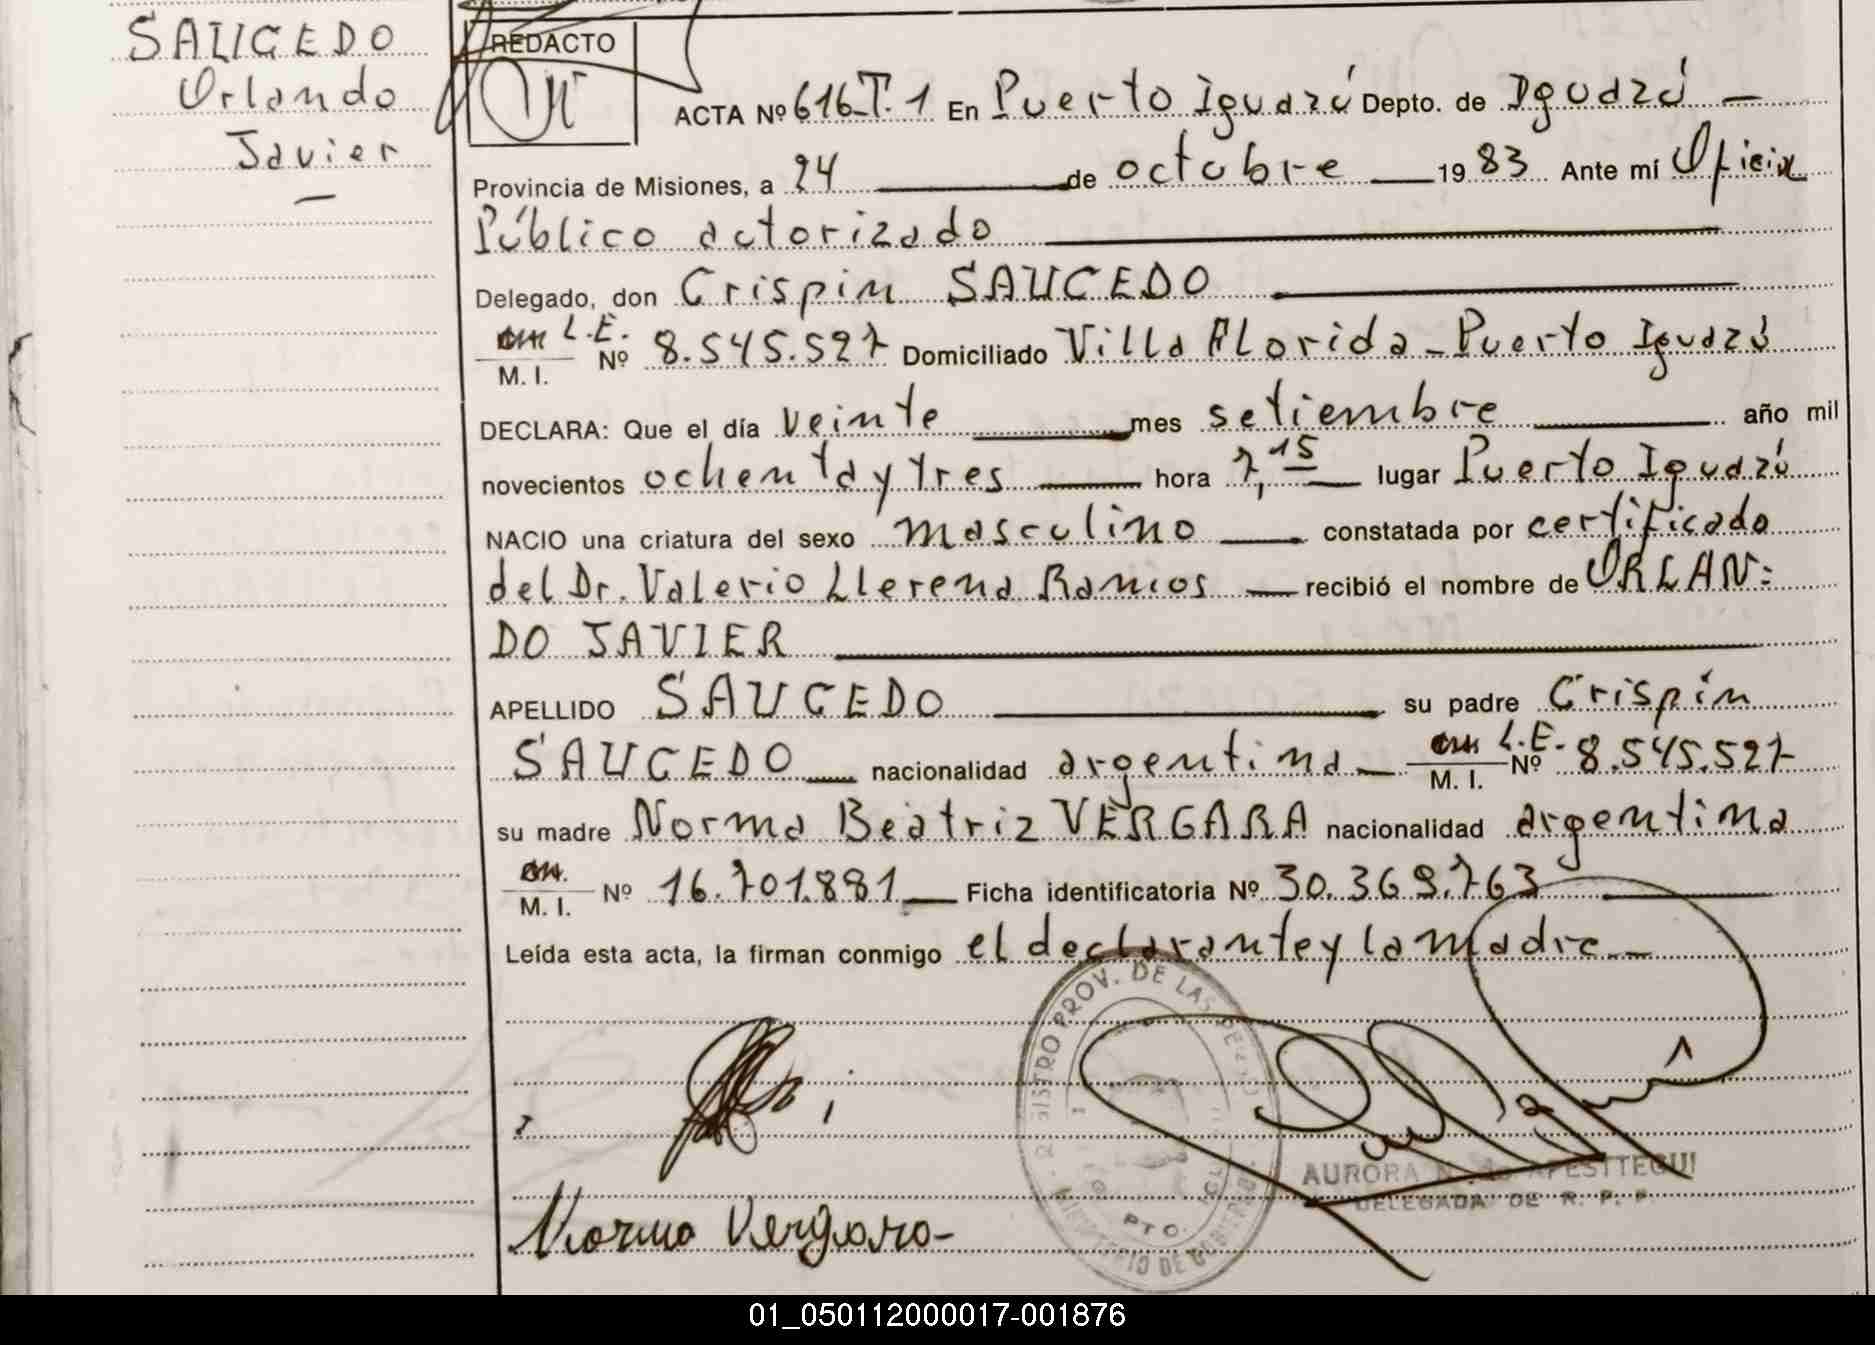 SAUCEDO
Orlando
Javier
—
REDACTO
ACTA Nº 616 T. 1 En Puerto Iguazú Depto. de Iguazú —
Provincia de Misiones, a 24 de octubre 1983 Ante mí Oficial
Público autorizado
Delegado, don Crispin SAUCEDO
L.E.
M. I. Nº 8.545.527 Domiciliado Villa Florida - Puerto Iguazú
DECLARA: Que el día veinte mes setiembre año mil
novecientos ochenta y tres hora 7,15 lugar Puerto Iguazú
NACIO una criatura del sexo masculino constatada por certificado
del Dr. Valerio Llerena Ramos recibió el nombre de ORLAN=
DO JAVIER
APELLIDO SAUCEDO su padre Crispín
SAUCEDO nacionalidad argentina M. I. L.E. Nº 8.545.527
su madre Norma Beatriz VERGARA nacionalidad argentina
M. I. Nº 16.701.881 Ficha identificatoria Nº 30.369.763
Leída esta acta, la firman conmigo el declarante y la madre.-
REGISTRO PROV. DE LAS PERSONAS
PTO. IGUAZU
MINISTERIO DE GOBIERNO
AURORA N. de APESTTEGUI
DELEGADA DE R. P. P.
Norma Vergara-
01_050112000017-001876